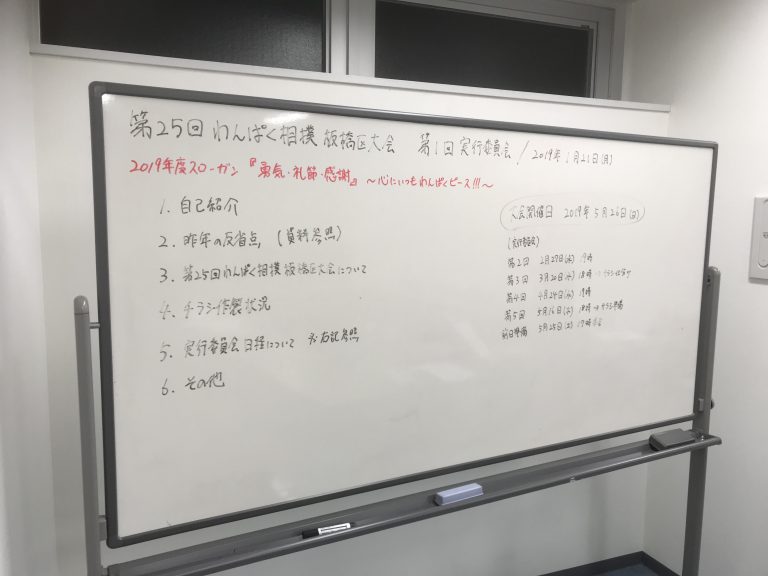 第25回 わんぱく相撲 板橋区大会 第1回 実行委員会 / 2019年1月21日(月)
2019年度スローガン『勇気・礼節・感謝』 ～心にいつもわんぱくピース!!!～
1. 自己紹介
2. 昨年の反省点 (資料参照)
3. 第25回わんぱく相撲 板橋区大会について
4. チラシ作製状況
5. 実行委員会日程について ※右記参照
6. その他
大会開催日 2019年5月26日(日)
(実行委員会)
第2回 2月27日(水) 19時
第3回 3月20日(水) 18時 → チラシ仕分け
第4回 4月24日(水) 19時
第5回 5月16日(木) 18時 →
前日準備 5月25日(土) 17時